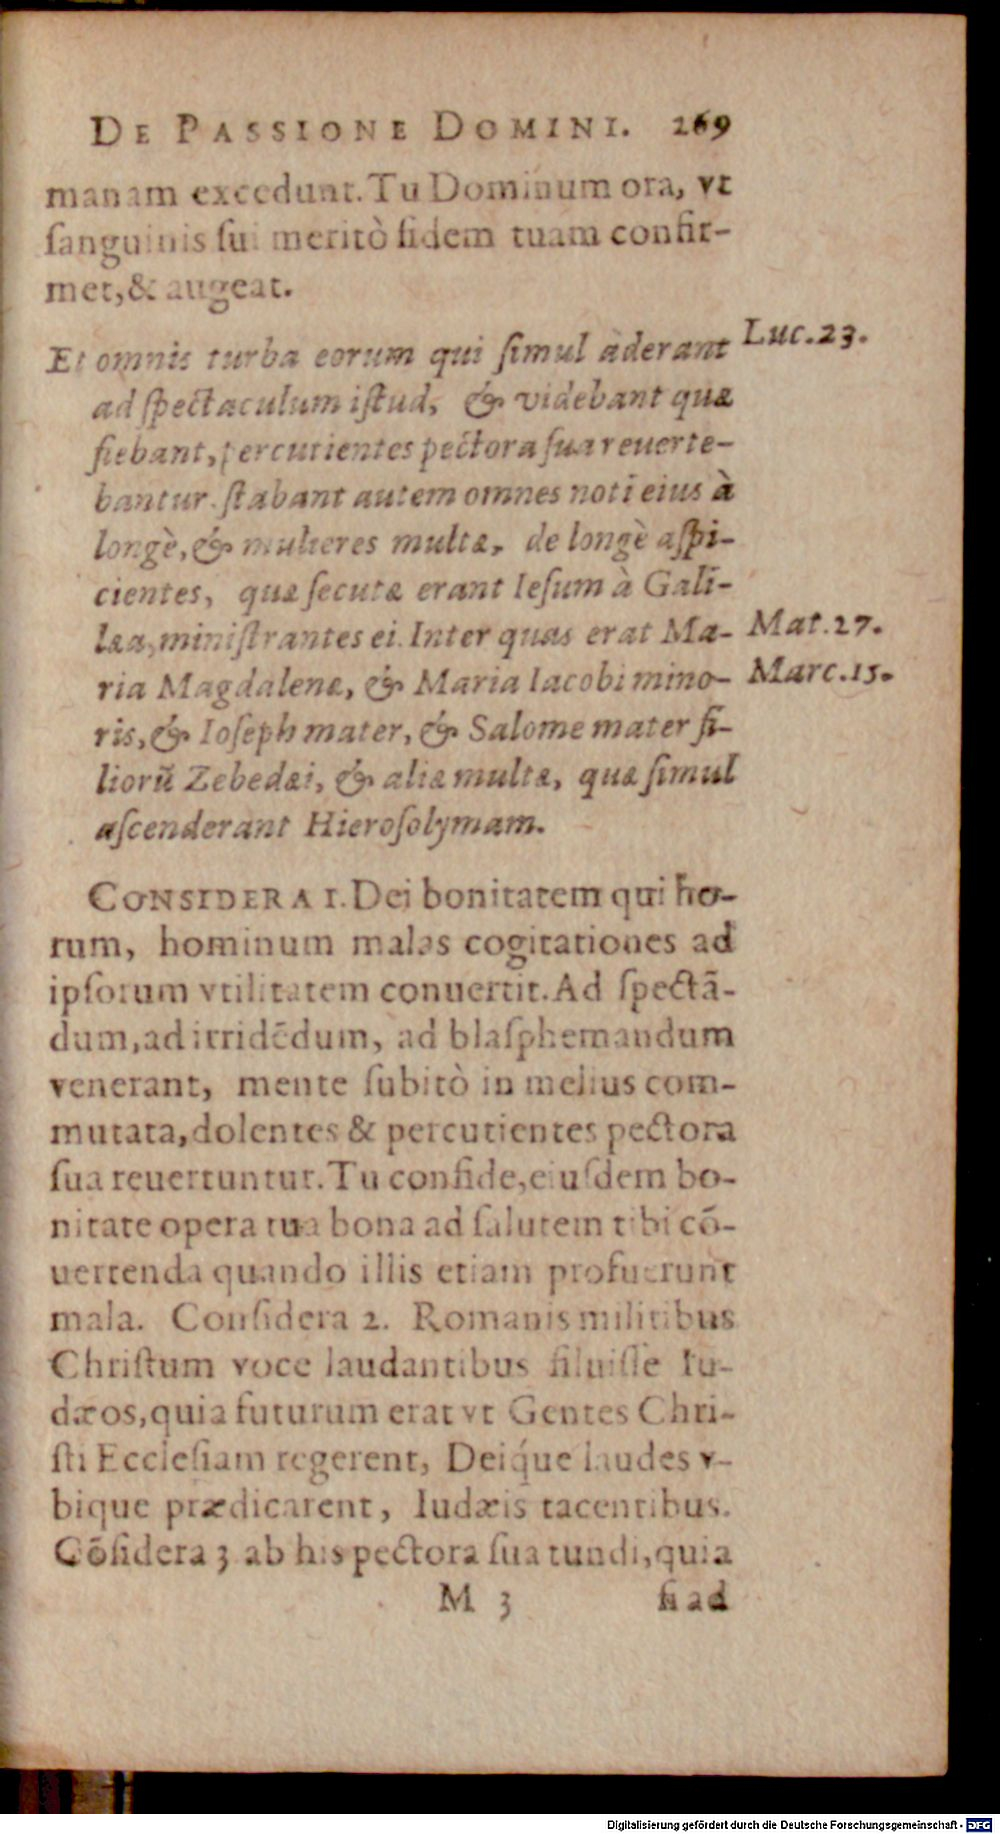 DE PASSIONE DOMINI. 269
manam excedunt. Tu Dominum ora, vt
ſanguinis ſui meritò fidem tuam confir-
met, & augeat.
Et omnis turba eorum qui ſimul àderant Luc. 23.
ad ſpectaculum iſtud, & videbant quæ
fiebant, percutientes pectora ſua reuerte-
bantur. ſtabant autem omnes noti eius à
longè, & mulieres multæ, de longè aſpi-
cientes, quæ ſecutæ erant Ieſum à Gali-
læa, miniſtrantes ei. Inter quas erat Ma- Mat. 27.
ria Magdalenæ, & Maria Iacobi mino- Marc. 15.
ris, & Ioſeph mater, & Salome mater fi-
liorũ Zebedæi, & aliæ multæ, quæ ſimul
aſcenderant Hieroſolymam.
CONSIDERA 1. Dei bonitatem qui ho-
rum, hominum malas cogitationes ad
ipſorum vtilitatem conuertit. Ad ſpectã-
dum, ad irridēdum, ad blaſphemandum
venerant, mente ſubitò in melius com-
mutata, dolentes & percutientes pectora
ſua reuertuntur. Tu confide, eiuſdem bo-
nitate opera tua bona ad ſalutem tibi cō-
uertenda quando illis etiam profuerunt
mala. Conſidera 2. Romanis militibus
Chriſtum voce laudantibus ſiluiſſe Iu-
dæos, quia futurum erat vt Gentes Chri-
ſti Eccleſiam regerent, Deiq́ue laudes v-
bique prædicarent, Iudæis tacentibus.
Cōſidera 3 ab his pectora ſua tundi, quia
M 3 ſi ad
Digitalisierung gefördert durch die Deutsche Forschungsgemeinschaft - DFG